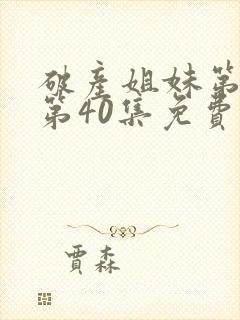 破產姐妹第
第40集免費
賈森